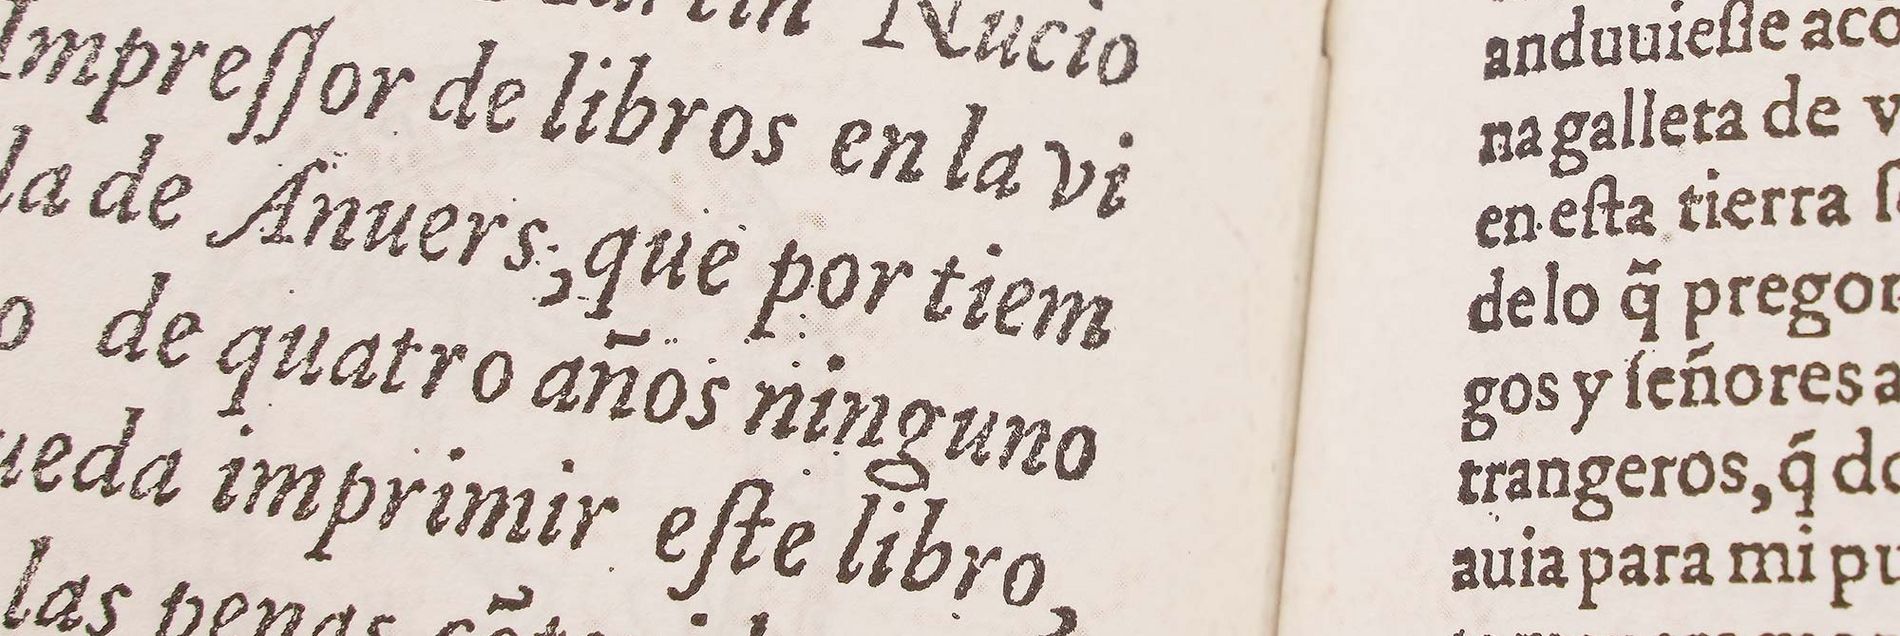 Nucio
Impreſſor de libros en la vi
la de Anuers, que por tiem
o de quatro años ninguno
ueda imprimir eſte libro,
las penas
anduuieſſe aco
na galleta de v
en eſta tierra ſ
de lo q̃ pregon
gos y ſeñores a
trangeros, q̃ do
auia para mi pu